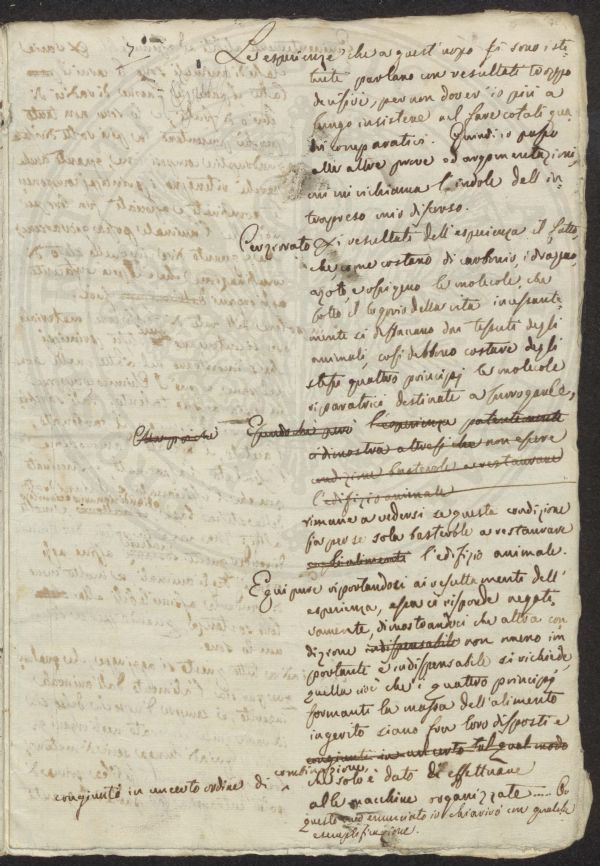 Le esperienze che a quest'uopo si sono isti-
tuite parlano con resultati troppo
decisivi, per non dover io più a
lungo insistere nel fare cotali qua-
dri comparativi. Quindi io passo
alle altre prove ed argomentazioni
cui mi richiama l'indole dell'in-
trapreso mio discorso.
Comprovato dai resultati dell'esperienza il fatto
che, come costano di carbonio, idrogeno,
azoto, e ossigeno le molecole, che
sotto il logorio della vita incessante-
mente si distaccano dai tessuti degli
animali, così debbono costare degli
stessi quattro principj le molecole
riparatrici destinate a surrogarle,
l'esperienza patentemente
ci dimostra altresì che non essere
condizione bastevole a restaurare
l'edifizio animale
rimane a vedersi se questa condizione
sia per se sola bastevole a restaurare
l'edifizio animale.
E qui pure riportandosi ai resultamenti dell'
esperienza, essa ci risponde negati-
vamente, dimostrandoci che altra con-
dizione indispensabile non meno im-
portante e indispensabile si richiede,
quella cioè che i quattro principj
formanti la massa dell'alimento
ingerito siano fra loro disposti e
congiunti in un certo tal qual modo
congiunti in un certo ordine di combinazione, che solo è dato di effettuare
alle macchine organizzate
questo enunciato io chiarirò con qualche
esemplificazione.